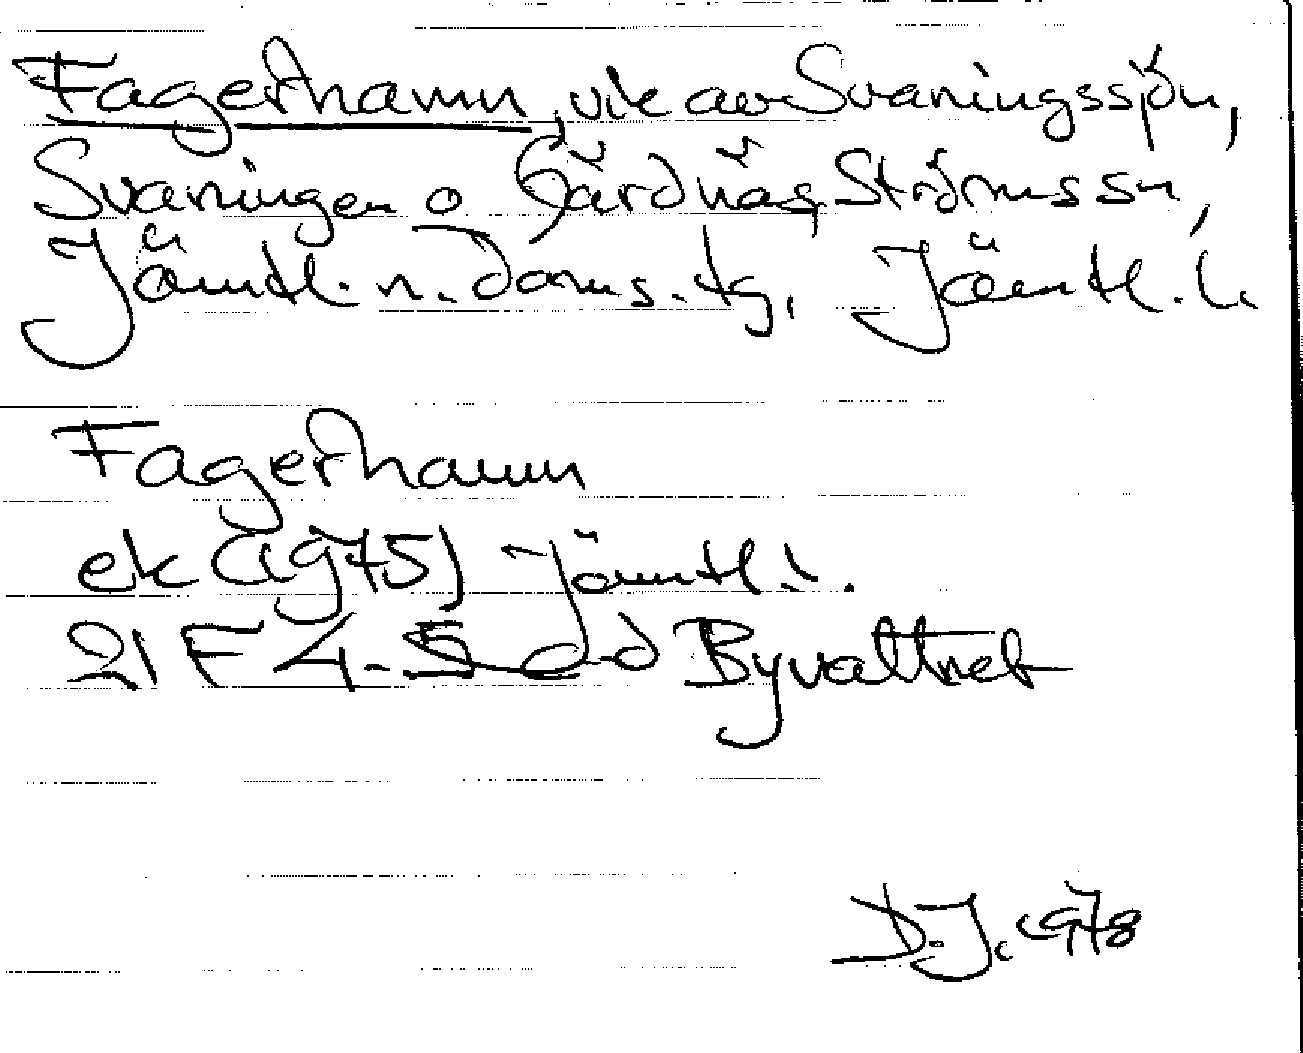 Fagerhamn, vik av Svaningssjön,
Svaningen o Gärdnäs, Ströms sn,
Jämtl. n. doms. tg, Jämtl. l.
Fagerhamn
ek (1975) Jämtl l.
21 F 4-5 c-d Byvattnet
D.J. 1978